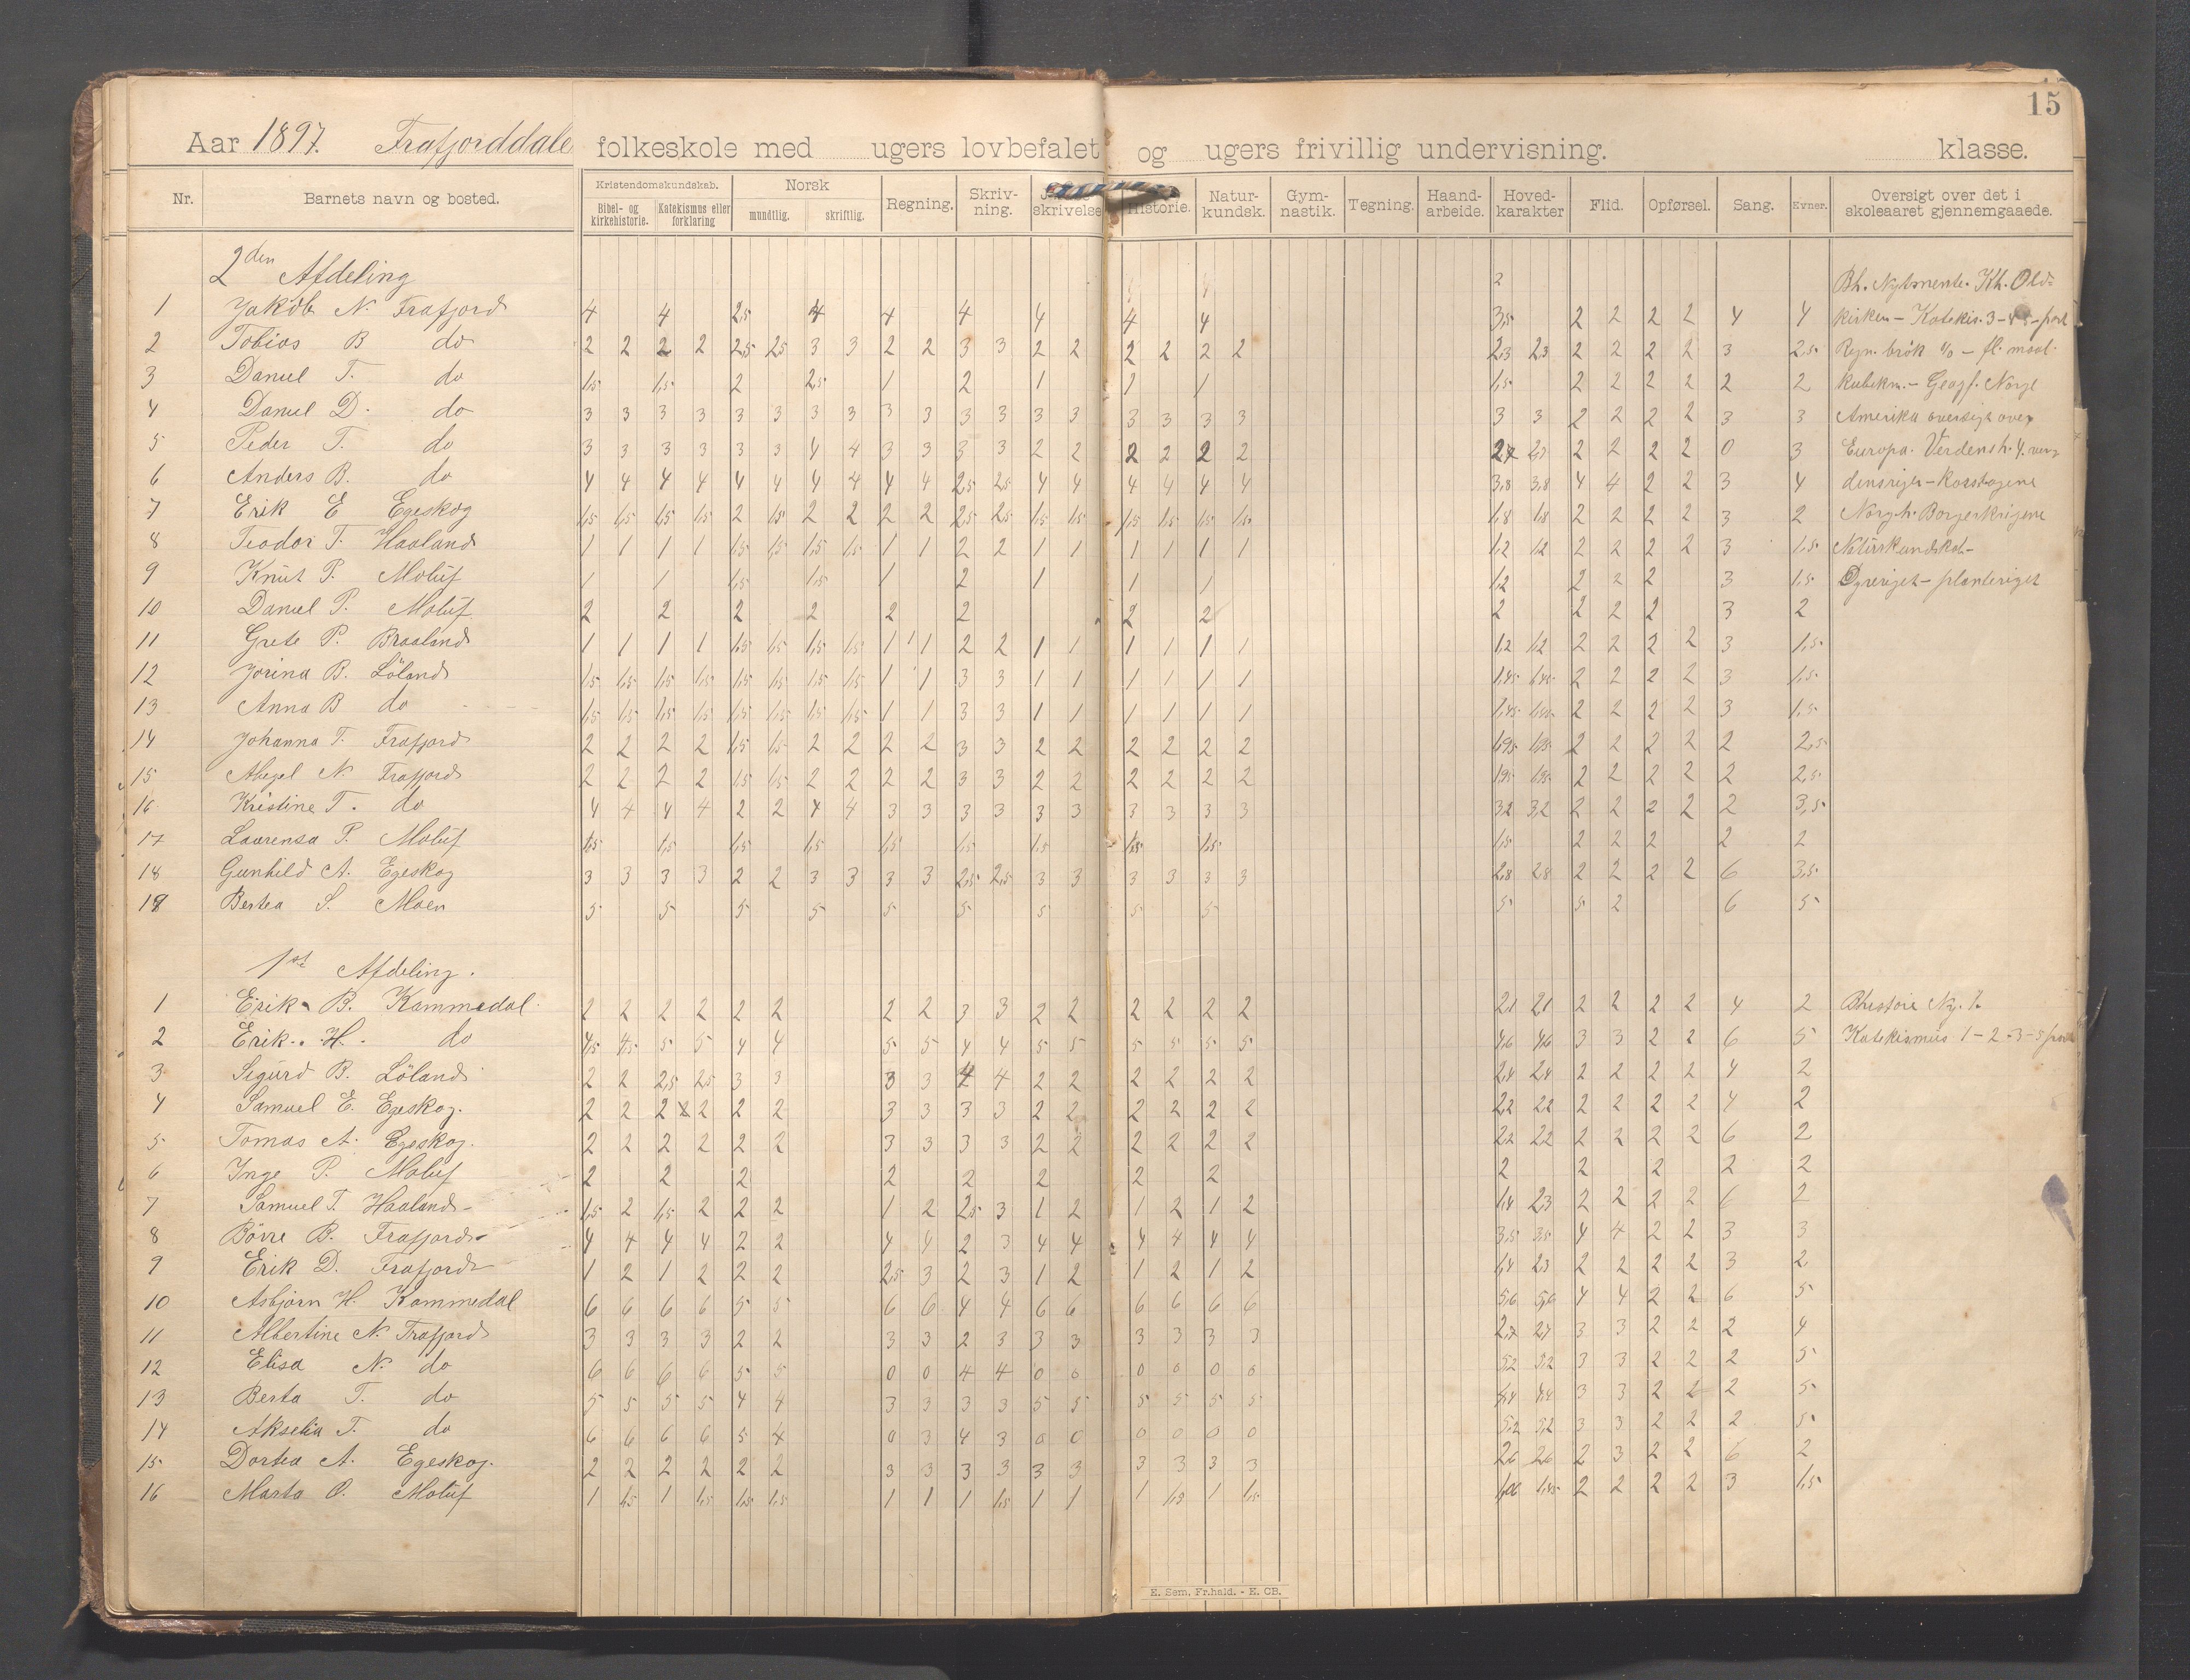 15
Aar 1897. Frafjorddale folkeskole med ugers lovbefalet og ugers frivillig undervisning. klasse.
Nr. Barnets navn og bosted. Kristendomskundskab. Bibel- og kirkehistorie. Katekismus eller forklaring Norsk mundtlig. skriftlig. Regning. Skriv-ning. skrivelse Historie. Natur-kundsk. Gym-nastik. Tegning. Haand-arbeide. Hoved-karakter Flid. Opførsel. Sang. Evner. Oversigt over det i skoleaaret gjennemgaaede.
2den Afdeling Bh. Nytmente. Kh. Old-
1 Jakob N. Frafjord 4 4 2,5 4 4 4 4 4 4 3,5 2 2 2 2 4 4 kirken - Katekis. 3-4-5- part
2 Tobias B do 2 2 2 2 2,5 2,5 3 3 2 2 3 3 2 2 2 2 2 2 2,3 2,3 2 2 2 2 3 2,5
3 Daniel T. do 1,5 1,5 2 2,5 1 2 1 1 1 1,5 2 2 2 2 2 2 kubikm. - Geogf. Norge
4 Daniel D. do 3 3 3 3 3 3 3 3 3 3 3 3 3 3 3 3 3 3 3 3 2 2 2 2 3 3 Amerika oversigt over
5 Peder T. do 3 3 3 3 3 3 4 4 3 3 3 3 2 2 2 2 2 2 2 2 2 2 0 3 Europa. Verdensh. 4.
6 Anders B. do 4 4 4 4 4 4 4 4 4 4 2,5 2,5 4 4 4 4 4 4 3,8 3,8 4 4 2 2 3 4
7 Erik E Egeskog 1,5 1,5 1,5 1,5 2 1,5 2 2 2 2 2,5 2,5 1,5 1,5 1,5 1,5 1,5 1,5 1,8 1,8 2 2 2 2 3 2 Norgh. Borgerkrigene
8 Teodor T. Haaland 1 1 1 1 1,5 1,5 1,5 1,5 1 1 2 2 1 1 1 1 1 1 1,2 1,2 2 2 2 2 3 1,5
9 Knut P. Moluf 1 1 1,5 1,5 1 2 1 1 1 1,2 2 2 2 3 1,5 Dyreriget - planteriget
10 Daniel P. Moluf 2 2 2 2 2 2 2 2 2 2 2 2 3 2
11 Grete P. Braaland 1 1 1 1 1,5 1,5 1,5 1,5 1 1 2 2 1 1 1 1 1 1 1,2 1,2 2 2 2 2 3 1,5
12 Jorina B. Löland 1,5 1,5 1,5 1,5 1,5 1,5 1,5 1,5 1 1 3 3 1 1 1 1 1 1 1,45 1,45 2 2 2 2 3 1,5
13 Anna B do 1,5 1,5 1,5 1,5 1,5 1,5 1,5 1,5 1 1 3 3 1 1 1 1 1 1 1,45 2 2 2 2 3 1,5
14 Johanna T. Frafjord 2 2 2 2 1,5 1,5 2 2 2 2 3 3 2 2 2 2 2 2 1,95 1,95 2 2 2 2 2 2,5
15 Abegel N. Frafjord 2 2 2 2 1,5 1,5 2 2 2 2 3 3 2 2 2 2 2 2 1,95 1,95 2 2 2 2 2 2,5
16 Kristine T. do 4 4 4 4 2 2 4 4 3 3 3 3 3 3 3 3 3 3 3,2 3,2 2 2 2 2 2 3,5
17 Laurensa P. Moluf 1,5 1,5 1,5 1,5 1,5 1,5 1,5 1,5 1,5 1,5 2 2 2 2 2
18 Gunhild A. Egeskog 3 3 3 3 2 2 3 3 3 3 2,5 2,5 3 3 3 3 3 3 2,8 2,8 2 2 2 2 6 3,5
18 Bertea S. Moen 5 5 5 5 5 5 5 5 5 5 5 2 6 5
1ste Afdeling.
1 Erik B. Kommedal 2 2 2 2 2 2 2 2 3 3 2 2 2 2 2 2 2,1 2,1 2 2 2 2 4 2 Bhistorie Ny. T.
2 Erik H. do 4,5 4,5 5 5 4 4 5 5 4 4 5 5 5 5 5 5 4,6 4,6 3 3 2 2 6 5 Katekismus 1-2-3-5 part
3 Sigurd B. Löland 2 2 2,5 2,5 3 3 3 3 4 4 2 2 2 2 2 2 2,4 2,4 2 2 2 2 4 2
4 Samuel E. Egeskog. 2 2 2 2 2 2 3 3 3 3 2 2 2 2 2 2 2,2 2,2 2 2 2 2 4 2
5 Tomas A. Egeskog. 2 2 2 2 2 2 3 3 3 3 2 2 2 2 2 2 2,2 2,2 2 2 2 2 6 2
6 Inge P. Moluf 2 2 2 2 2 2 2 2 2 2 2 2 2
7 Samuel T. Haaland 1,5 2 1,5 2 2 2 1 2 2,5 3 1 2 1 2 1 2 1,4 2,3 2 2 2 2 6 2
8 Börre B. Frafjord 4 4 4 4 2 2 4 4 2 3 4 4 4 4 4 4 3,5 3,5 4 4 2 2 3 3
9 Erik D. Frafjord 1 2 1 2 2 2 2,5 3 2 3 1 2 1 2 1 2 1,4 2,3 2 2 2 2 3 2
10 Asbjørn H. Kommedal 6 6 6 6 5 5 6 6 4 4 6 6 6 6 6 6 5,6 5,6 4 4 2 2 6 5
11 Albertine N. Frafjord 3 3 3 3 2 2 3 3 2 3 3 3 3 3 3 3 2,7 2,7 3 3 2 2 2 4
12 Elisa N. do 6 6 6 6 5 5 0 0 4 4 0 0 0 0 0 0 5,2 5,2 3 3 2 2 2 5
13 Berta T. do 5 5 5 5 4 4 3 3 3 3 5 5 5 5 5 5 4,4 4,4 3 3 2 2 2 5
14 Akselia T. do 6 6 6 6 5 4 0 3 4 3 0 0 0 0 0 0 5,2 5,2 3 3 2 2 2 5
15 Dortea A. Egeskog. 2 2 2 2 2 2 3 3 3 3 3 3 3 3 3 3 2,6 2,6 2 3 2 2 6 2
16 Marta O. Moluf 1 1,5 1 1,5 1,5 1,5 1 1 1 1,5 1 1 1 1,5 1 1,5 1,45 2 2 2 2 3 1,5
E. Sem, Fr.hald. - E. CB.